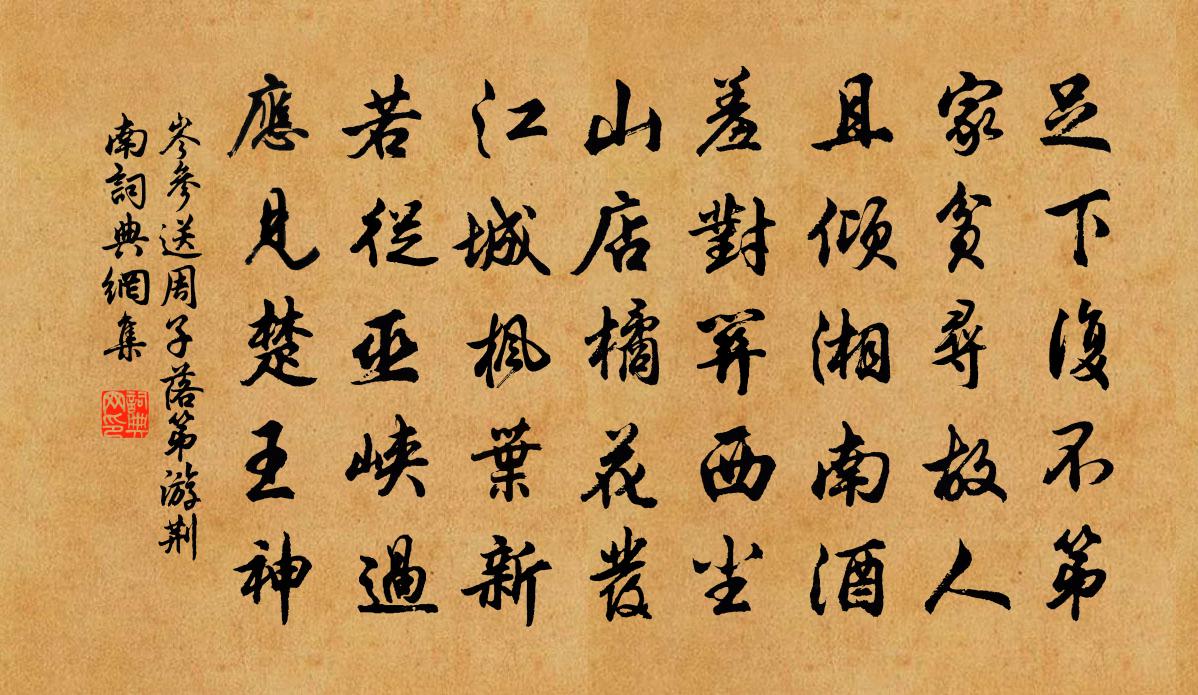 足下復不第
家貧尋故人
且傾湘南酒
羞對關西塵
山店橘花發
江城楓葉新
若從巫峽過
應見楚王神
岑參送周子落第游荊
南詞典網集
詞典网印